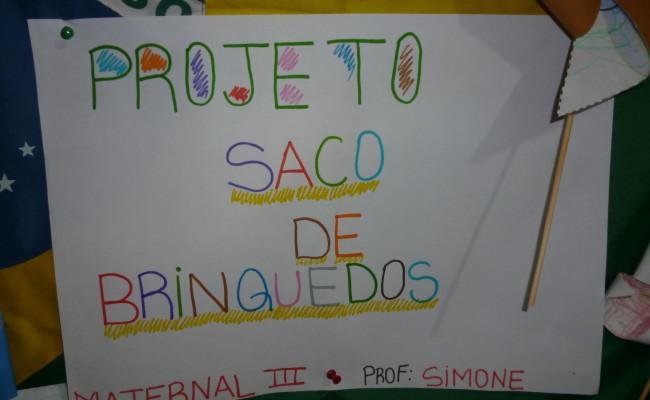 PROJETO
SACO
DE
BRINQUEDOS
MATERNAL III PROF: SIMONE